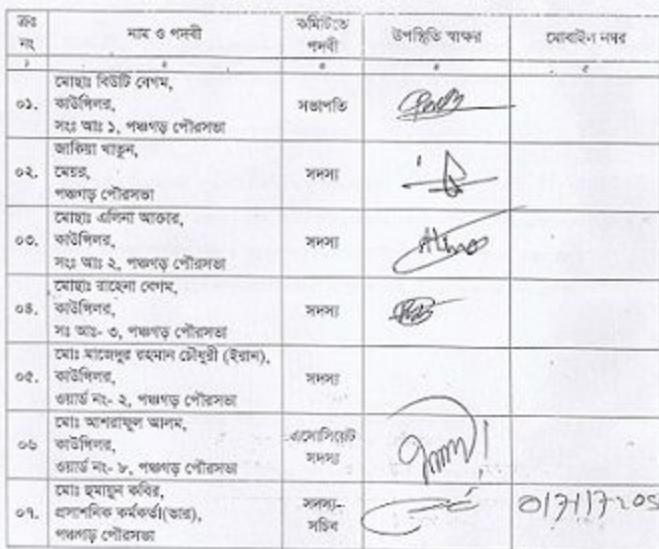 ক্রঃ নং
নাম ও পদবী
কমিটিতে পদবী
উপস্থিতি স্বাক্ষর
মোবাইল নম্বর
১ ২ ৩ ৪ ৫
০১.
মোছাঃ বিউটি বেগম,
কাউন্সিলর,
সংঃ আঃ ১, পঞ্চগড় পৌরসভা
সভাপতি
০২.
জাকিয়া খাতুন,
মেয়র,
পঞ্চগড় পৌরসভা
সদস্য
০৩.
মোছাঃ এলিনা আক্তার,
কাউন্সিলর,
সংঃ আঃ ২, পঞ্চগড় পৌরসভা
সদস্য
০৪.
মোছাঃ রাহেনা বেগম,
কাউন্সিলর,
সঃ আঃ- ৩, পঞ্চগড় পৌরসভা
সদস্য
০৫.
মোঃ মাজেদুর রহমান চৌধুরী (ইরান),
কাউন্সিলর,
ওয়ার্ড নং- ২, পঞ্চগড় পৌরসভা
সদস্য
০৬
মোঃ আশরাফুল আলম,
কাউন্সিলর,
ওয়ার্ড নং- ৮, পঞ্চগড় পৌরসভা
এসোসিয়েট
সদস্য
০৭.
মোঃ হুমায়ুন কবির,
প্রসাশনিক কর্মকর্তা(ভার),
পঞ্চগড় পৌরসভা
সদস্য-
সচিব